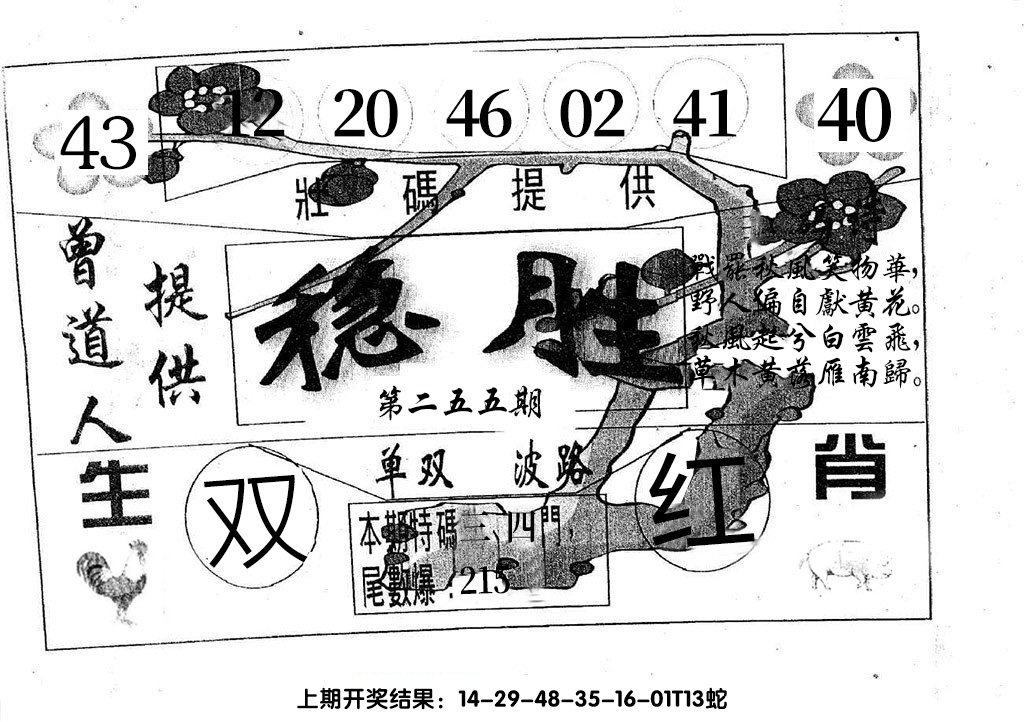 43 12 20 46 02 41 40
壯碼提供
曾道人
提供
稳胜
第二五五期
戰罷秋風笑物華，
野人偏自獻黄花。
秋風起兮白雲飛，
草木黄落雁南歸。
生肖
单双 波路
双
红
本期特碼三、四門，
尾數爆：215
上期开奖结果：14-29-48-35-16-01T13蛇